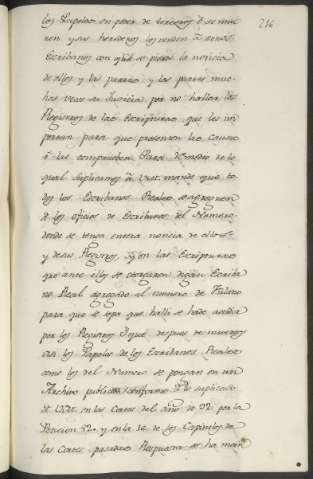 216
los Papeles en poder de terceros q.e se mue
ren y sus herederos los venden a otros
Escribanos con que se pierde la noticia
de ellos y las partes y las partes muc
has veces su Justicia por no hallar los
Registros de las Escripturas que les im
portan para que presenten las Causas
o las comprueben. Para remedio de lo
qual suplicamos a Vm. mande que to
dos los Escribanos Reales se agreguen
a los oficios de Escribanos del Numero,
donde se tenga entera noticia de ellos
y de sus Registros, y en las Escripturas
que ante ellos se otorguen digan Escriba
no Real agregado al numero de Fulano
para que se sepa que halli se hade acudir
por los Registros Y que despues de muertos
assi los Papeles de los Escribanos Reales
como los del Numero se pongan en un
Archivo publico conforme se suplicado
a Vm. en las Cortes del año de 92 por la
Peticion 52. y en la 16 de los Capitulos de
las Cortes pasadas Respuesta se ha man